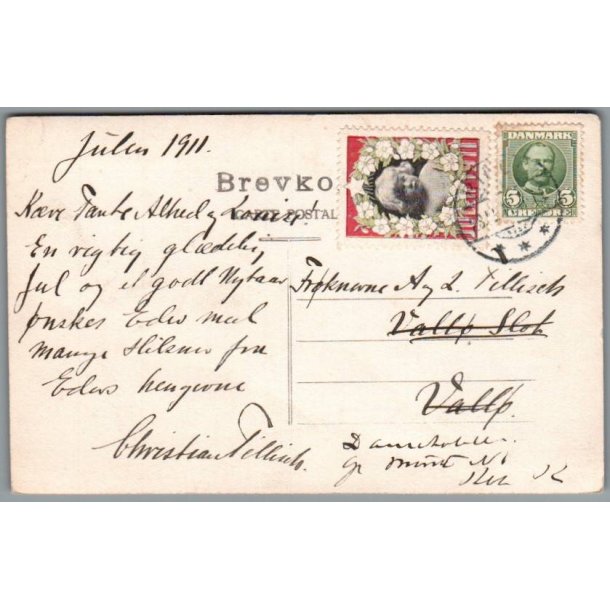 Julen 1911.
Brevko
CARTE POSTALE
Kære Tante Alhed og Louise!
En rigtig glædelig
Jul og et godt Nytaar
ønskes Eder med
mange Hilsner fra
Eders hengivne
Christian Tillisch.
JULEN 1911
DANMARK
5 5
ØRE
Frøknerne A og L. Tillisch
Vallø Slot
Vallø.
Gl Mønt No